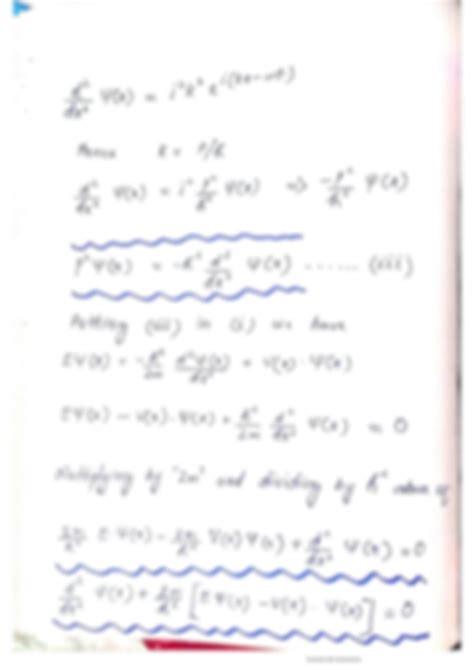 d²/dx² Ψ(x) = i²k² e^i(kx-ωt)
Hence k = P/ħ
d²/dx² Ψ(x) = i² P²/ħ² Ψ(x) => -P²/ħ² Ψ(x)
P²Ψ(x) = -ħ² d²/dx² Ψ(x) ...... (iii)
Putting (iii) in (i) we have
EΨ(x) = -ħ²/2m d²Ψ(x)/dx² + V(x) · Ψ(x)
EΨ(x) - V(x)·Ψ(x) + ħ²/2m d²/dx² Ψ(x) = 0
Multiplying by "2m" and dividing by ħ²
2m/ħ² EΨ(x) - 2m/ħ² V(x)Ψ(x) + d²/dx² Ψ(x) = 0
d²/dx² Ψ(x) + 2m/ħ² [EΨ(x) - V(x) · Ψ(x)] = 0